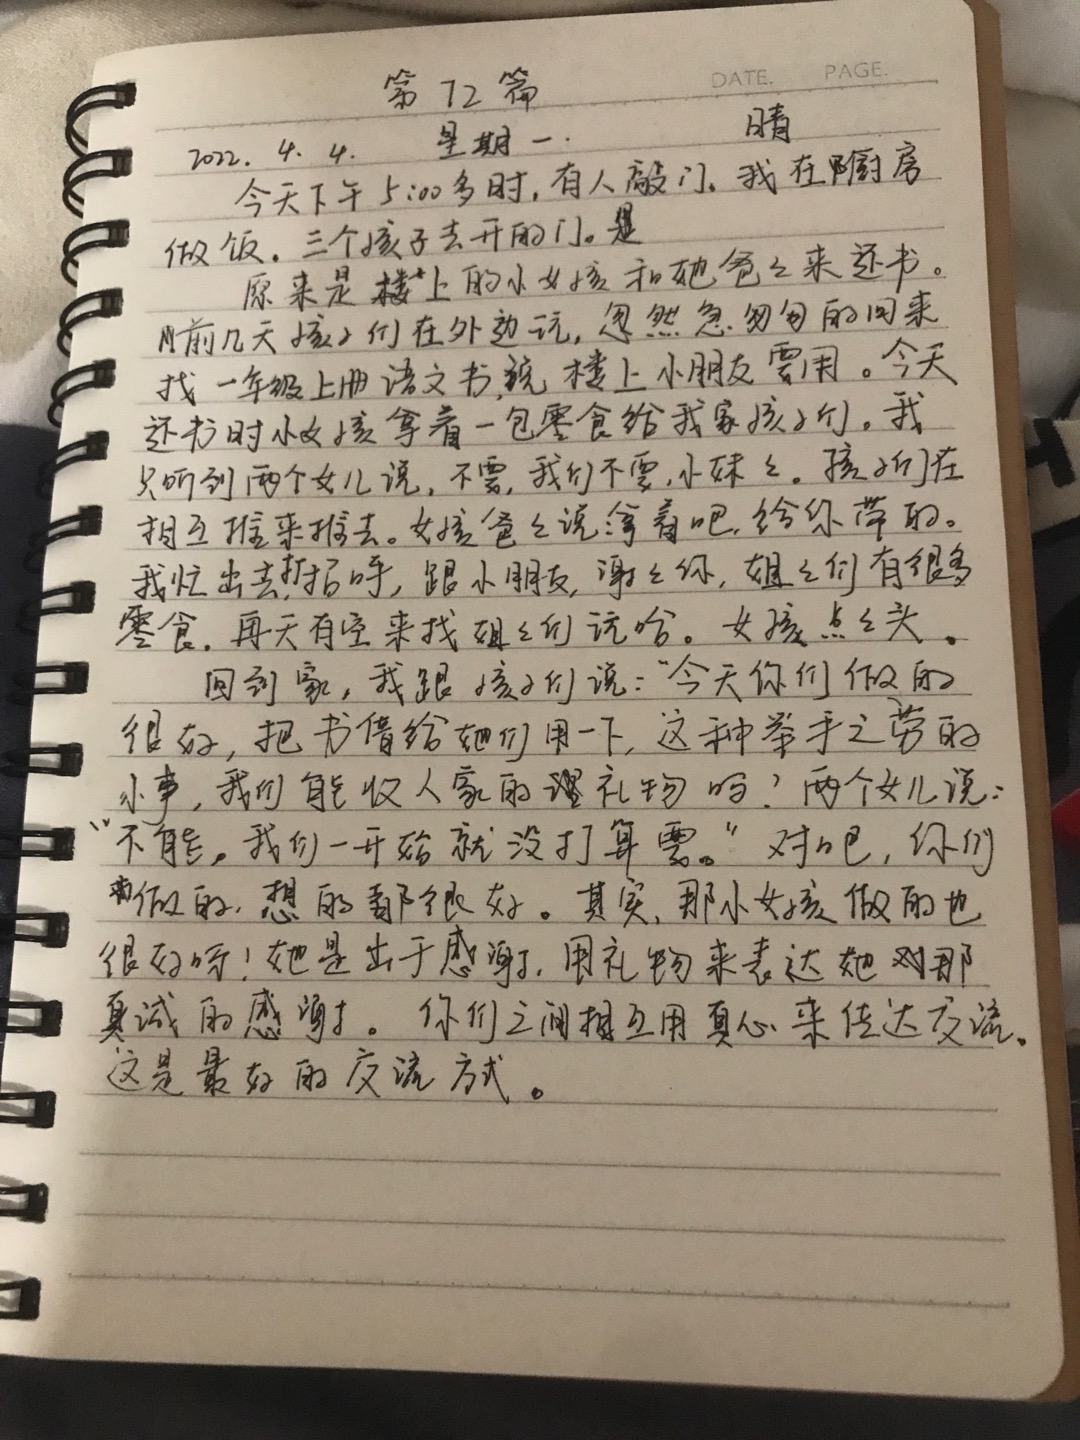 DATE. PAGE.
第72篇
2022. 4. 4. 星期一. 晴
今天下午5:00多时,有人敲门。我在厨房
做饭。三个孩子去开的门。
原来是楼上的小女孩和她爸々来还书。
前几天孩子们在外边玩,忽然急匆匆的回来
找一年级上册语文书,说楼上小朋友要用。今天
还书时小女孩拿着一包零食给我家孩子们。我
只听到两个女儿说,不要,我们不要,小妹々。孩子们在
相互推来推去。女孩爸々说拿着吧,给你带的。
我忙出去打招呼,跟小朋友,谢々你,姐々们有很多
零食.再天有空来找姐々们玩哈。女孩点々头。
回到家,我跟孩子们说:“今天你们做的
很好,把书借给她们用一下,这种举手之劳的
小事,我们能收人家的礼物吗?两个女儿说:
“不能。我们一开始就没打算要。”对吧,你们
做的.想的都很好。其实,那小女孩做的也
很好呀!她是出于感谢,用礼物来表达她那
真诚的感谢。你们之间相互用真心来传达交流。
这是最好的交流方式。